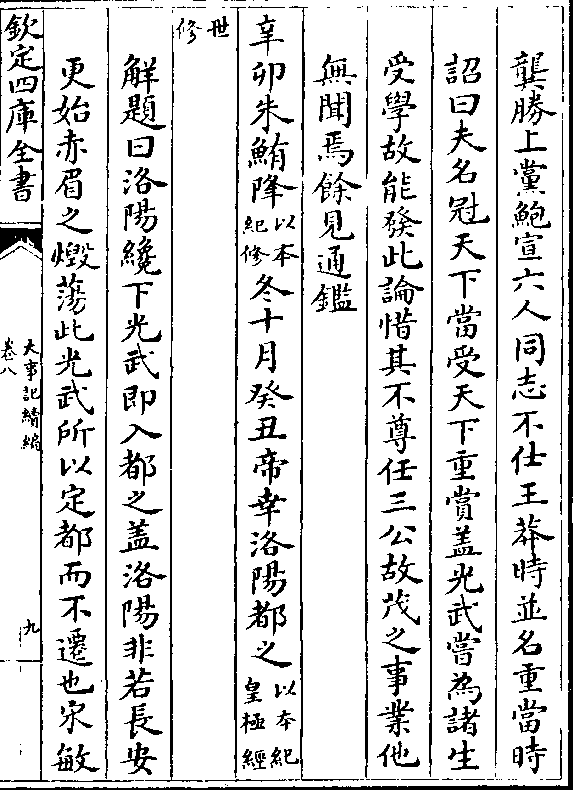 龔勝上黨鮑宣六人同志不仕王莽時並名重當時
詔曰夫名冠天下當受天下重賞蓋光武嘗為諸生
受學故能發此論惜其不尊任三公故茂之事業他
無聞焉餘見通鑑
辛卯朱鮪降以本紀修冬十月癸丑帝幸洛陽都之以本紀皇極經
世修
解題曰洛陽纔下光武即入都之盖洛陽非若長安
更始赤眉之燬蕩此光武所以定都而不遷也宋敏
欽定四庫全書
大事記續編
卷八
九